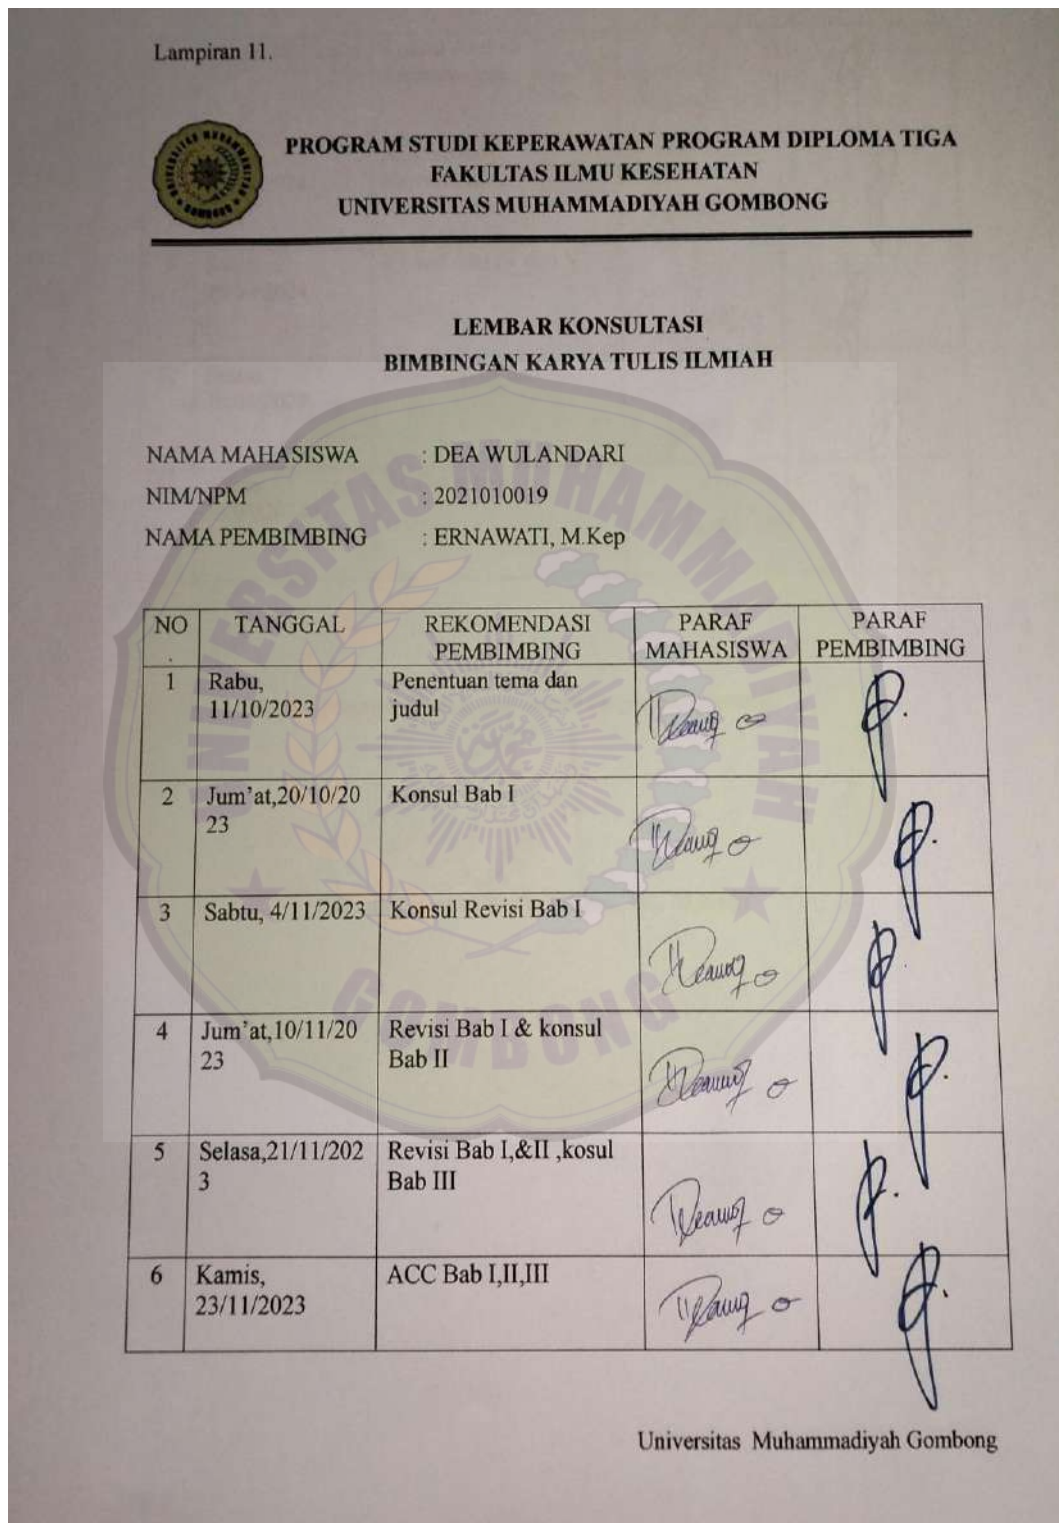 Lampiran 11.
PROGRAM STUDI KEPERAWATAN PROGRAM DIPLOMA TIGA
FAKULTAS ILMU KESEHATAN
UNIVERSITAS MUHAMMADIYAH GOMBONG
LEMBAR KONSULTASI
BIMBINGAN KARYA TULIS ILMIAH
NAMA MAHASISWA : DEA WULANDARI
NIM/NPM : 2021010019
NAMA PEMBIMBING : ERNAWATI, M.Kep
UNIVERSITAS MUHAMMADIYAH
GOMBONG
NO TANGGAL REKOMENDASI PARAF PARAF
. PEMBIMBING MAHASISWA PEMBIMBING
1 Rabu, Penentuan tema dan
11/10/2023 judul
2 Jum'at,20/10/20 Konsul Bab I
23
3 Sabtu, 4/11/2023 Konsul Revisi Bab I
4 Jum'at,10/11/20 Revisi Bab I & konsul
23 Bab II
5 Selasa,21/11/202 Revisi Bab I,&II ,kosul
3 Bab III
6 Kamis, ACC Bab I,II,III
23/11/2023
Universitas Muhammadiyah Gombong